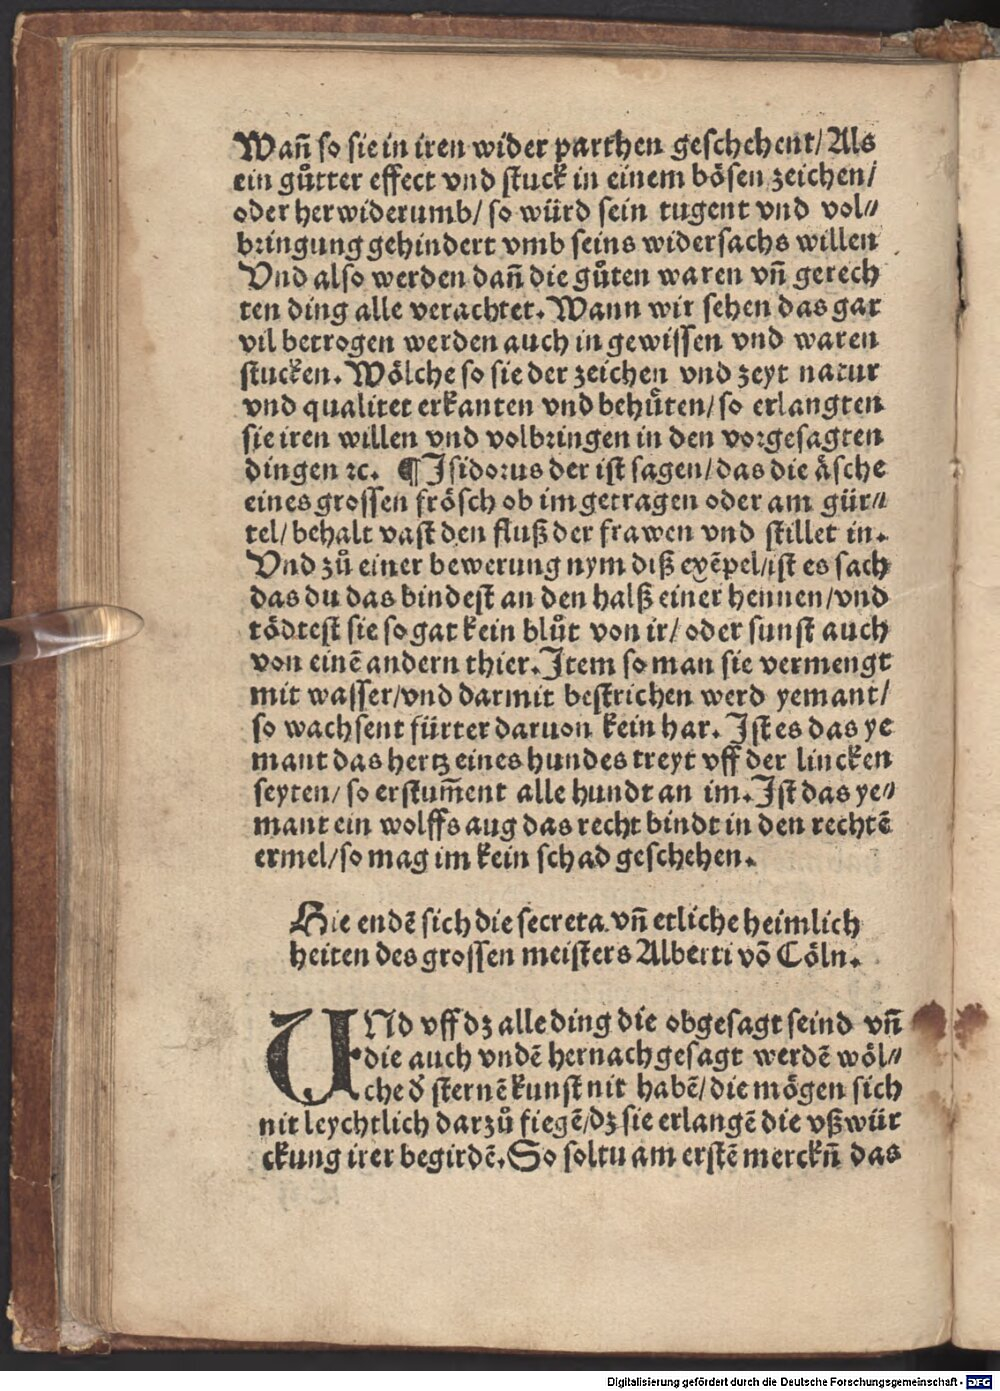 Wañ so sie in iren wider parthen geschehent/ Als
ein gůtter effect vnd stuck in einem bösen zeichen/
oder herwiderumb/ so würd sein tugent vnd vol⸗
bringung gehindert vmb seins widersachs willen
Vnd also werden dañ die gůten waren vñ gerech
ten ding alle verachtet. Wann wir sehen das gar
vil betrogen werden auch in gewissen vnd waren
stucken. Wölche so sie der zeichen vnd zeyt natur
vnd qualitet erkanten vnd behůten/ so erlangten
sie iren willen vnd volbringen in den vorgesagten
dingen ꝛc. ¶ Isidorus der ist sagen/ das die äsche
eines grossen frösch ob im getragen oder am gür⸗
tel/ behalt vast den fluß der frawen vnd stillet in.
Vnd zů einer bewerung nym diß exẽpel/ ist es sach
das du das bindest an den halß einer hennen/ vnd
tödtest sie so gat kein blůt von ir/ oder sunst auch
von einẽ andern thier. Item so man sie vermengt
mit wasser/ vnd darmit bestrichen werd yemant/
so wachsent fürter daruon kein har. Ist es das ye
mant das hertz eines hundes treyt vff der lincken
seyten/ so erstum̃ent alle hundt an im. Ist das ye⸗
mant ein wolffs aug das recht bindt in den rechtẽ
ermel/ so mag im kein schad geschehen.
Hie endẽ sich die secreta vñ etliche heimlich
heiten des grossen meisters Alberti võ Cöln.
UNd vff dz alle ding die obgesagt seind vñ
die auch vndẽ hernach gesagt werdẽ wöl⸗
che d̕ sternẽ kunst nit habẽ/ die mögen sich
nit leychtlich darzů fiegẽ/ dz sie erlangẽ die vßwür
ckung irer begirdẽ. So soltu am erstẽ merckñ das
Digitalisierung gefördert durch die Deutsche Forschungsgemeinschaft - DFG